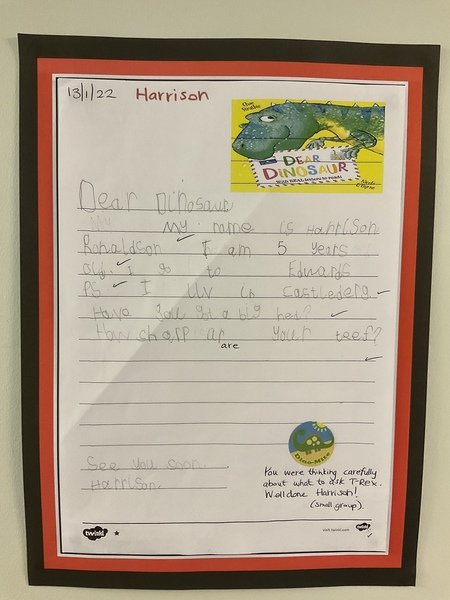 13/1/22 Harrison
Chae Strathie
DEAR
DINOSAUR
With REAL letters to read!
Nicola O'Byrne
Dear Dinosaur
My name is Harrison
Ronaldson I am 5 years
old. I go to Edwards
PS I liv in castlederg
Have you got a big hed?
How sharp ar your teef?
are
See you soon
Harrison.
Dino-Mite
You were thinking carefully
about what to ask T-Rex.
Well done Harrison!
(small group).
twinkl
visit twinkl.com
twinkl